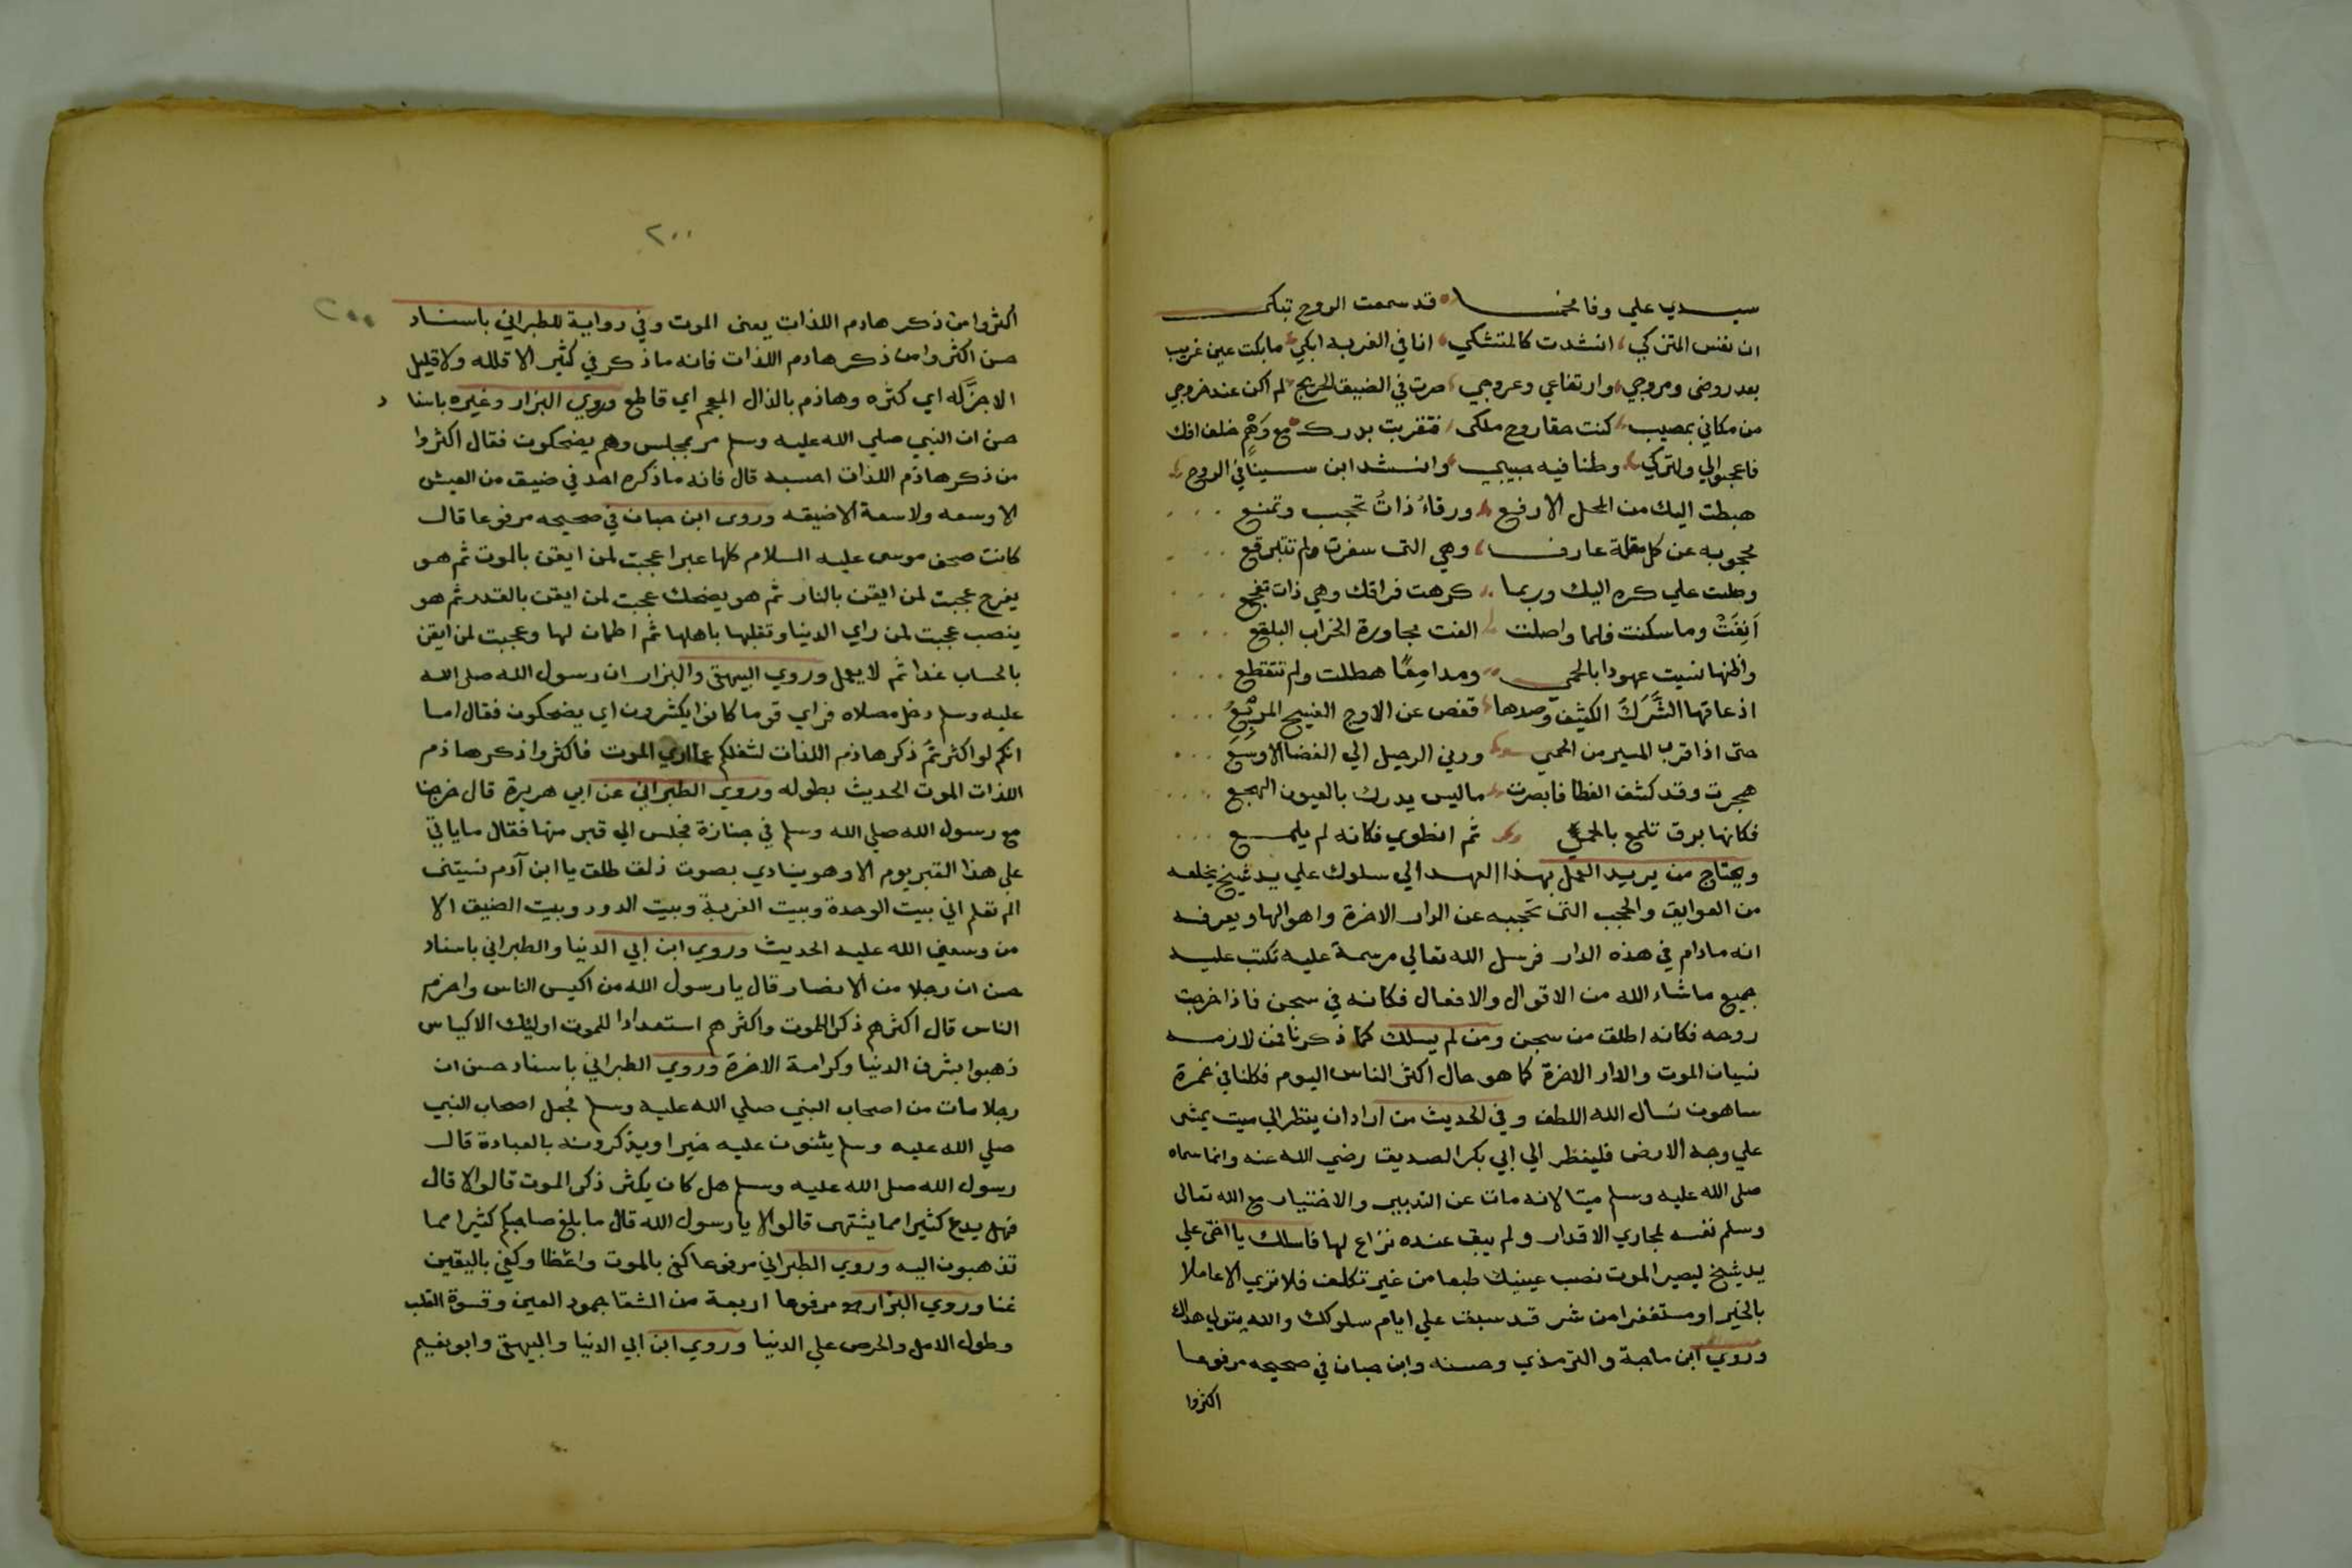 سيدي علي وفا مخمسا قد سمعت الروح تبكي
ان نفس المتزكي انشدت كالمتشكي انا في الغربه ابكي ما بكت عين غريب
بعد روضى ومروجي وارتفاعي وعروجي صرت في الضيق الحريج لم اكن عند خروجي
من مكاني بمصيب كنت حقا روح ملكى فتغربت بدرك مع وهم خلف افك
فاعجبوا لي ولتركي وطنا فيه حبيبي وانشد ابن سينا في الروح
هبطت اليك من المحل الارفع ورقاء ذات تحجب وتمنع
محجوبه عن كل مقلة عارف وهي التى سفرت ولم تتبرقع
وصلت علي كره اليك وربما كرهت فراقك وهي ذات تفجع
اَنِفَتْ وما سكنت فلما واصلت الفت مجاورة الخراب البلقع
واظنها نسيت عهودا بالحمى ومدامعًا هطلت ولم تتقطع
اذ عاقها الشَّرَكُ الكثيف وصدها قفص عن الاوج الفسيح المربع
حتى اذا قرب المسير من الحمي ودني الرحيل الي الفضا الاوسع
هجرت وقد كشف الغطا فابصرت ما ليس يدرك بالعيون الهجع
فكانها برق تلمع بالحمي ثم انطوي فكانه لم يلمع
ويحتاج من يريد العمل بهذا العهد الي سلوك علي يد شيخ يخلصه
من العوايق والحجب التى تحجبه عن الدار الاخرة واهوالها ويعرفه
انه مادام في هذه الدار فرسل الله تعالي مرسمة عليه تكتب عليه
جميع ما شاء الله من الاقوال والافعال فكانه في سجن فاذا خرجت
روحه فكانه اطلق من سجن ومن لم يسلك كما ذكرنا فمن لازمه
نسيان الموت والدار الاخرة كما هو حال اكثر الناس اليوم فكلنا في غمرة
ساهون نسال الله اللطف وفي الحديث من اراد ان ينظر الي ميت يمشى
علي وجه الارض فلينظر الي ابي بكر الصديق رضي الله عنه وانما سماه
صلى الله عليه وسلم ميتا لانه مات عن التدبير والاختيار مع الله تعالى
وسلم نفسه لمجاري الاقدار ولم يبق عنده نزاع لها فاسلك يا اخى علي
يد شيخ ليصير الموت نصب عينيك طبعا من غير تكلف فلا تري الا عاملا
بالخير او مستغفرا من شر قد سبق علي ايام سلوكك والله يتولي هداك
وروي ابن ماجة والترمذي وحسنه وابن حبان في صحيحه مرفوعا
اكثروا
٢٠٠
٢٠٠
اكثروا من ذكر هادم اللذات يعنى الموت وفي رواية للطبراني باسناد
حسن اكثروا من ذكر هادم اللذات فانه ما ذكر في كثير الا قلله ولا قليل
الا جزله اي كثره وهاذم بالذال المعجم اي قاطع وروي البزار وغيره باسنا د
حسن ان النبي صلي الله عليه وسلم مر بمجلس وهم يضحكون فقال اكثروا
من ذكر هاذم اللذات احسبه قال فانه ما ذكره احد في ضيق من العيش
الا وسعه ولا سعة الا ضيقه وروى ابن حبان في صحيحه مرفوعا قال
كانت صحف موسى عليه السلام كلها عبرا عجبت لمن ايقن بالموت ثم هو
يفرح عجبت لمن ايقن بالنار ثم هو يضحك عجبت لمن ايقن بالقدر ثم هو
ينصب عجبت لمن راي الدنيا وتقلبها باهلها ثم اطمان لها وعجبت لمن ايقن
بالحساب غدا ثم لا يعمل وروي البيهقى والبزار ان رسول الله صلى الله
عليه وسلم دخل مصلاه فراي قوما كانوا يكثرون اي يضحكون فقال اما
انكم لو اكثرتم ذكر هاذم اللذات لشغلكم عما اري الموت فاكثروا ذكر هاذم
اللذات الموت الحديث بطوله وروي الطبراني عن ابي هريرة قال خرجنا
مع رسول الله صلي الله وسلم في جنازة فجلس الي قبر منها فقال ما ياتي
على هذا القبر يوم الا وهو ينادي بصوت ذلق طلق يا ابن آدم نسيتنى
الم تعلم اني بيت الوحدة وبيت الغربة وبيت الدود وبيت الضيق الا
من وسعني الله عليه الحديث وروي ابن ابي الدنيا والطبراني باسناد
حسن ان رجلا من الانصار قال يا رسول الله من اكيس الناس واحزم
الناس قال اكثرهم ذكرا للموت واكثرهم استعدادا للموت اوليك الاكياس
ذهبوا بشرف الدنيا وكرامة الاخرة وروي الطبراني باسناد حسن ان
رجلا مات من اصحاب النبي صلي الله عليه وسلم فجعل اصحاب النبي
صلي الله عليه وسلم يثنون عليه خيرا ويذكرونه بالعبادة قال
رسول الله صلى الله عليه وسلم هل كان يكثر ذكر الموت قالوا لا قال
فهل يدع كثيرا مما يشتهى قالوا لا يا رسول الله قال ما بلغ صاحبكم كثيرا مما
تذهبون اليه وروي الطبراني مرفوعا كفى بالموت واعظا وكفي باليقين
غنا وروي البزار مرفوعا اربعة من الشقا جمود العين وقسوة القلب
وطول الامل والحرص علي الدنيا وروي ابن ابي الدنيا والبيهقى وابو نعيم